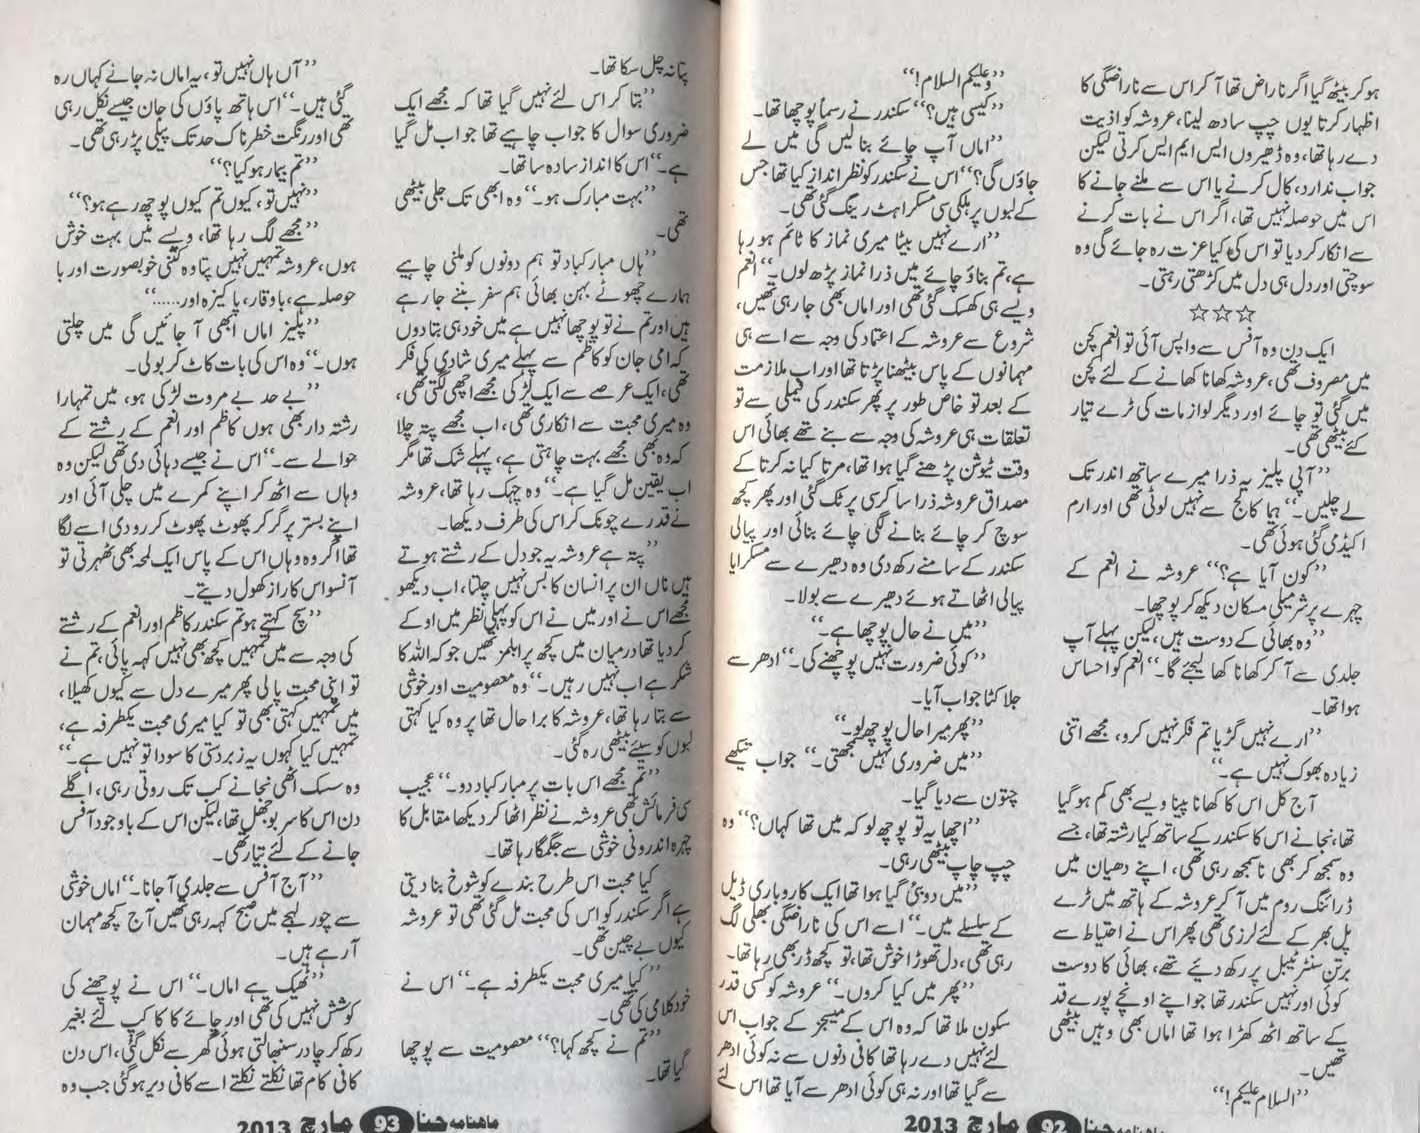 ہو کر بیٹھ گیا اگر ناراض تھا آ کر اس سے ناراضگی کا
اظہار کرتا یوں چپ سادھ لینا، عروشہ کو اذیت
دے رہا تھا، وہ ڈھیروں ایس ایم ایس کرتی لیکن
جواب ندارد، کال کرنے یا اس سے ملنے جانے کا
اس میں حوصلہ نہیں تھا، اگر اس نے بات کرنے
سے انکار کر دیا تو اس کی کیا عزت رہ جائے گی وہ
سوچتی اور دل ہی دل میں کڑھتی رہتی۔
☆☆☆
ایک دن وہ آفس سے واپس آئی تو انعم کچن
میں مصروف تھی، عروشہ کھانا کھانے کے لئے کچن
میں گئی تو چائے اور دیگر لوازمات کی ٹرے تیار
کئے بیٹھی تھی۔
’’آپی پلیز یہ ذرا میرے ساتھ اندر تک
لے چلیں۔‘‘ ہما کالج سے نہیں لوٹی تھی اور ارم
اکیڈمی گئی ہوئی تھی۔
’’کون آیا ہے؟‘‘ عروشہ نے انعم کے
چہرے پر شرمیلی مسکان دیکھ کر پوچھا۔
’’وہ بھائی کے دوست ہیں، لیکن پہلے آپ
جلدی سے آ کر کھانا کھا لیجئے گا۔‘‘ انعم کو احساس
ہوا تھا۔
’’ارے نہیں گڑیا تم فکر نہیں کرو، مجھے اتنی
زیادہ بھوک نہیں ہے۔‘‘
آج کل اس کا کھانا پینا ویسے بھی کم ہو گیا
تھا، نجانے اس کا سکندر کے ساتھ کیا رشتہ تھا، جسے
وہ سمجھ کر بھی نا سمجھ رہی تھی، اپنے دھیان میں
ڈرائنگ روم میں آ کر عروشہ کے ہاتھ میں ٹرے
پل بھر کے لئے لرزی تھی پھر اس نے احتیاط سے
برتن سنٹر ٹیبل پر رکھ دیئے تھے، بھائی کا دوست
کوئی اور نہیں سکندر تھا جو اپنے اونچے پورے قد
کے ساتھ اٹھ کھڑا ہوا تھا اماں بھی وہیں بیٹھی
تھیں۔
’’السلام علیکم!‘‘
’’وعلیکم السلام!‘‘
’’کیسی ہیں؟‘‘ سکندر نے رسماً پوچھا تھا۔
’’اماں آپ چائے بنا لیں گی میں لے
جاؤں گی؟‘‘ اس نے سکندر کو نظر انداز کیا تھا جس
کے لبوں پر ہلکی سی مسکراہٹ رینگ گئی تھی۔
’’ارے نہیں بیٹا میری نماز کا ٹائم ہو رہا
ہے، تم بناؤ چائے میں ذرا نماز پڑھ لوں۔‘‘ انعم
ویسے ہی کھسک گئی تھی اور اماں بھی جا رہی تھیں،
شروع سے عروشہ کے اعتماد کی وجہ سے اسے ہی
مہمانوں کے پاس بیٹھنا پڑتا تھا اور اب ملازمت
کے بعد تو خاص طور پر پھر سکندر کی فیملی سے تو
تعلقات ہی عروشہ کی وجہ سے بنے تھے بھائی اس
وقت ٹیوشن پڑھنے گیا ہوا تھا، مرتا کیا نہ کرتا کے
مصداق عروشہ ذرا سا کرسی پر ٹک گئی اور پھر کچھ
سوچ کر چائے بنانے لگی چائے بنائی اور پیالی
سکندر کے سامنے رکھ دی وہ دھیرے سے مسکرایا
پیالی اٹھاتے ہوئے دھیرے سے بولا۔
’’میں نے حال پوچھا ہے۔‘‘
’’کوئی ضرورت نہیں پوچھنے کی۔‘‘ ادھر سے
جلا کٹا جواب آیا۔
’’پھر میرا حال پوچھ لو۔‘‘
’’میں ضروری نہیں سمجھتی۔‘‘ جواب تیکھے
چتون سے دیا گیا۔
’’اچھا یہ تو پوچھ لو کہ میں تھا کہاں؟‘‘ وہ
چپ چاپ بیٹھی رہی۔
’’میں دوبئی گیا ہوا تھا ایک کاروباری ڈیل
کے سلسلے میں۔‘‘ اسے اس کی ناراضگی بھلی لگ
رہی تھی، دل تھوڑا خوش تھا، تو کچھ ڈر بھی رہا تھا۔
’’پھر میں کیا کروں۔‘‘ عروشہ کو کسی قدر
سکون ملا تھا کہ وہ اس کے میسجز کے جواب اس
لئے نہیں دے رہا تھا کافی دنوں سے نہ کوئی ادھر
سے گیا تھا اور نہ ہی کوئی ادھر سے آیا تھا اس لئے
ماهنامہ حنا 92 مارچ 2013
پتا نہ چل سکا تھا۔
’’بتا کر اس لئے نہیں گیا تھا کہ مجھے ایک
ضروری سوال کا جواب چاہیے تھا جواب مل گیا
ہے۔‘‘ اس کا انداز سادہ سا تھا۔
’’بہت مبارک ہو۔‘‘ وہ ابھی تک جلی بیٹھی
تھی۔
’’ہاں مبارکباد تو ہم دونوں کو ملنی چاہیے
ہمارے چھوٹے بہن بھائی ہم سفر بننے جا رہے
ہیں اور تم نے تو پوچھا نہیں ہے میں خود ہی بتا دوں
کہ امی جان کو کاظم سے پہلے میری شادی کی فکر
تھی، ایک عرصے سے ایک لڑکی مجھے اچھی لگتی تھی،
وہ میری محبت سے انکاری تھی، اب مجھے پتہ چلا
کہ وہ بھی مجھے بہت چاہتی ہے، پہلے شک تھا مگر
اب یقین مل گیا ہے۔‘‘ وہ چہک رہا تھا، عروشہ
نے قدرے چونک کر اس کی طرف دیکھا۔
’’پتہ ہے عروشہ یہ جو دل کے رشتے ہوتے
ہیں ناں ان پر انسان کا بس نہیں چلتا، اب دیکھو
مجھے اس نے اور میں نے اس کو پہلی نظر میں اوکے
کر دیا تھا درمیان میں کچھ پرابلمز تھیں جو کہ اللہ کا
شکر ہے اب نہیں رہیں۔‘‘ وہ معصومیت اور خوشی
سے بتا رہا تھا، عروشہ کا برا حال تھا پر وہ کیا کہتی
لبوں کو سیئے بیٹھی رہ گئی۔
’’تم مجھے اس بات پر مبارکباد دو۔‘‘ عجیب
سی فرمائش تھی عروشہ نے نظر اٹھا کر دیکھا مقابل کا
چہرہ اندرونی خوشی سے جگمگا رہا تھا۔
کیا محبت اس طرح بندے کو شوخ بنا دیتی
ہے اگر سکندر کو اس کی محبت مل گئی تھی تو عروشہ
کیوں بے چین تھی۔
’’کیا میری محبت یکطرفہ ہے۔‘‘ اس نے
خود کلامی کی تھی۔
’’تم نے کچھ کہا؟‘‘ معصومیت سے پوچھا
گیا تھا۔
’’آں ہاں نہیں تو، یہ اماں نہ جانے کہاں رہ
گئی ہیں۔‘‘ اس ہاتھ پاؤں کی جان جیسے نکل رہی
تھی اور رنگت خطرناک حد تک پیلی پڑ رہی تھی۔
’’تم بیمار ہو کیا؟‘‘
’’نہیں تو، کیوں تم کیوں پوچھ رہے ہو؟‘‘
’’مجھے لگ رہا تھا، ویسے میں بہت خوش
ہوں، عروشہ تمہیں نہیں پتا وہ کتنی خوبصورت اور با
حوصلہ ہے، باوقار، پاکیزہ اور......‘‘
’’پلیز اماں ابھی آ جائیں گی میں چلتی
ہوں۔‘‘ وہ اس کی بات کاٹ کر بولی۔
’’بے حد بے مروت لڑکی ہو، میں تمہارا
رشتہ دار بھی ہوں کاظم اور انعم کے رشتے کے
حوالے سے۔‘‘ اس نے جیسے دہائی دی تھی لیکن وہ
وہاں سے اٹھ کر اپنے کمرے میں چلی آئی اور
اپنے بستر پر گر کر پھوٹ پھوٹ کر رو دی اسے لگا
تھا اگر وہ وہاں اس کے پاس ایک لمحہ بھی ٹھہرتی تو
آنسو اس کا راز کھول دیتے۔
’’سچ کہتے ہو تم سکندر کاظم اور انعم کے رشتے
کی وجہ سے میں تمہیں کچھ بھی نہیں کہہ پائی، تم نے
تو اپنی محبت پا لی پھر میرے دل سے کیوں کھیلا،
میں تمہیں کہتی بھی تو کیا میری محبت یکطرفہ ہے،
تمہیں کیا کہوں یہ زبردستی کا سودا تو نہیں ہے۔‘‘
وہ سسک اٹھی نجانے کب تک روتی رہی، اگلے
دن اس کا سر بوجھل تھا، لیکن اس کے باوجود آفس
جانے کے لئے تیار تھی۔
’’آج آفس سے جلدی آ جانا۔‘‘ اماں خوشی
سے چور لہجے میں صبح کہہ رہی تھیں آج کچھ مہمان
آ رہے ہیں۔
’’ٹھیک ہے اماں۔‘‘ اس نے پوچھنے کی
کوشش نہیں کی تھی اور چائے کا کپ لئے بغیر
رکھ کر چادر سنبھالتی ہوئی گھر سے نکل گئی، اس دن
کافی کام تھا نکلتے نکلتے اسے کافی دیر ہو گئی جب وہ
ماهنامہ حنا 93 مارچ 2013